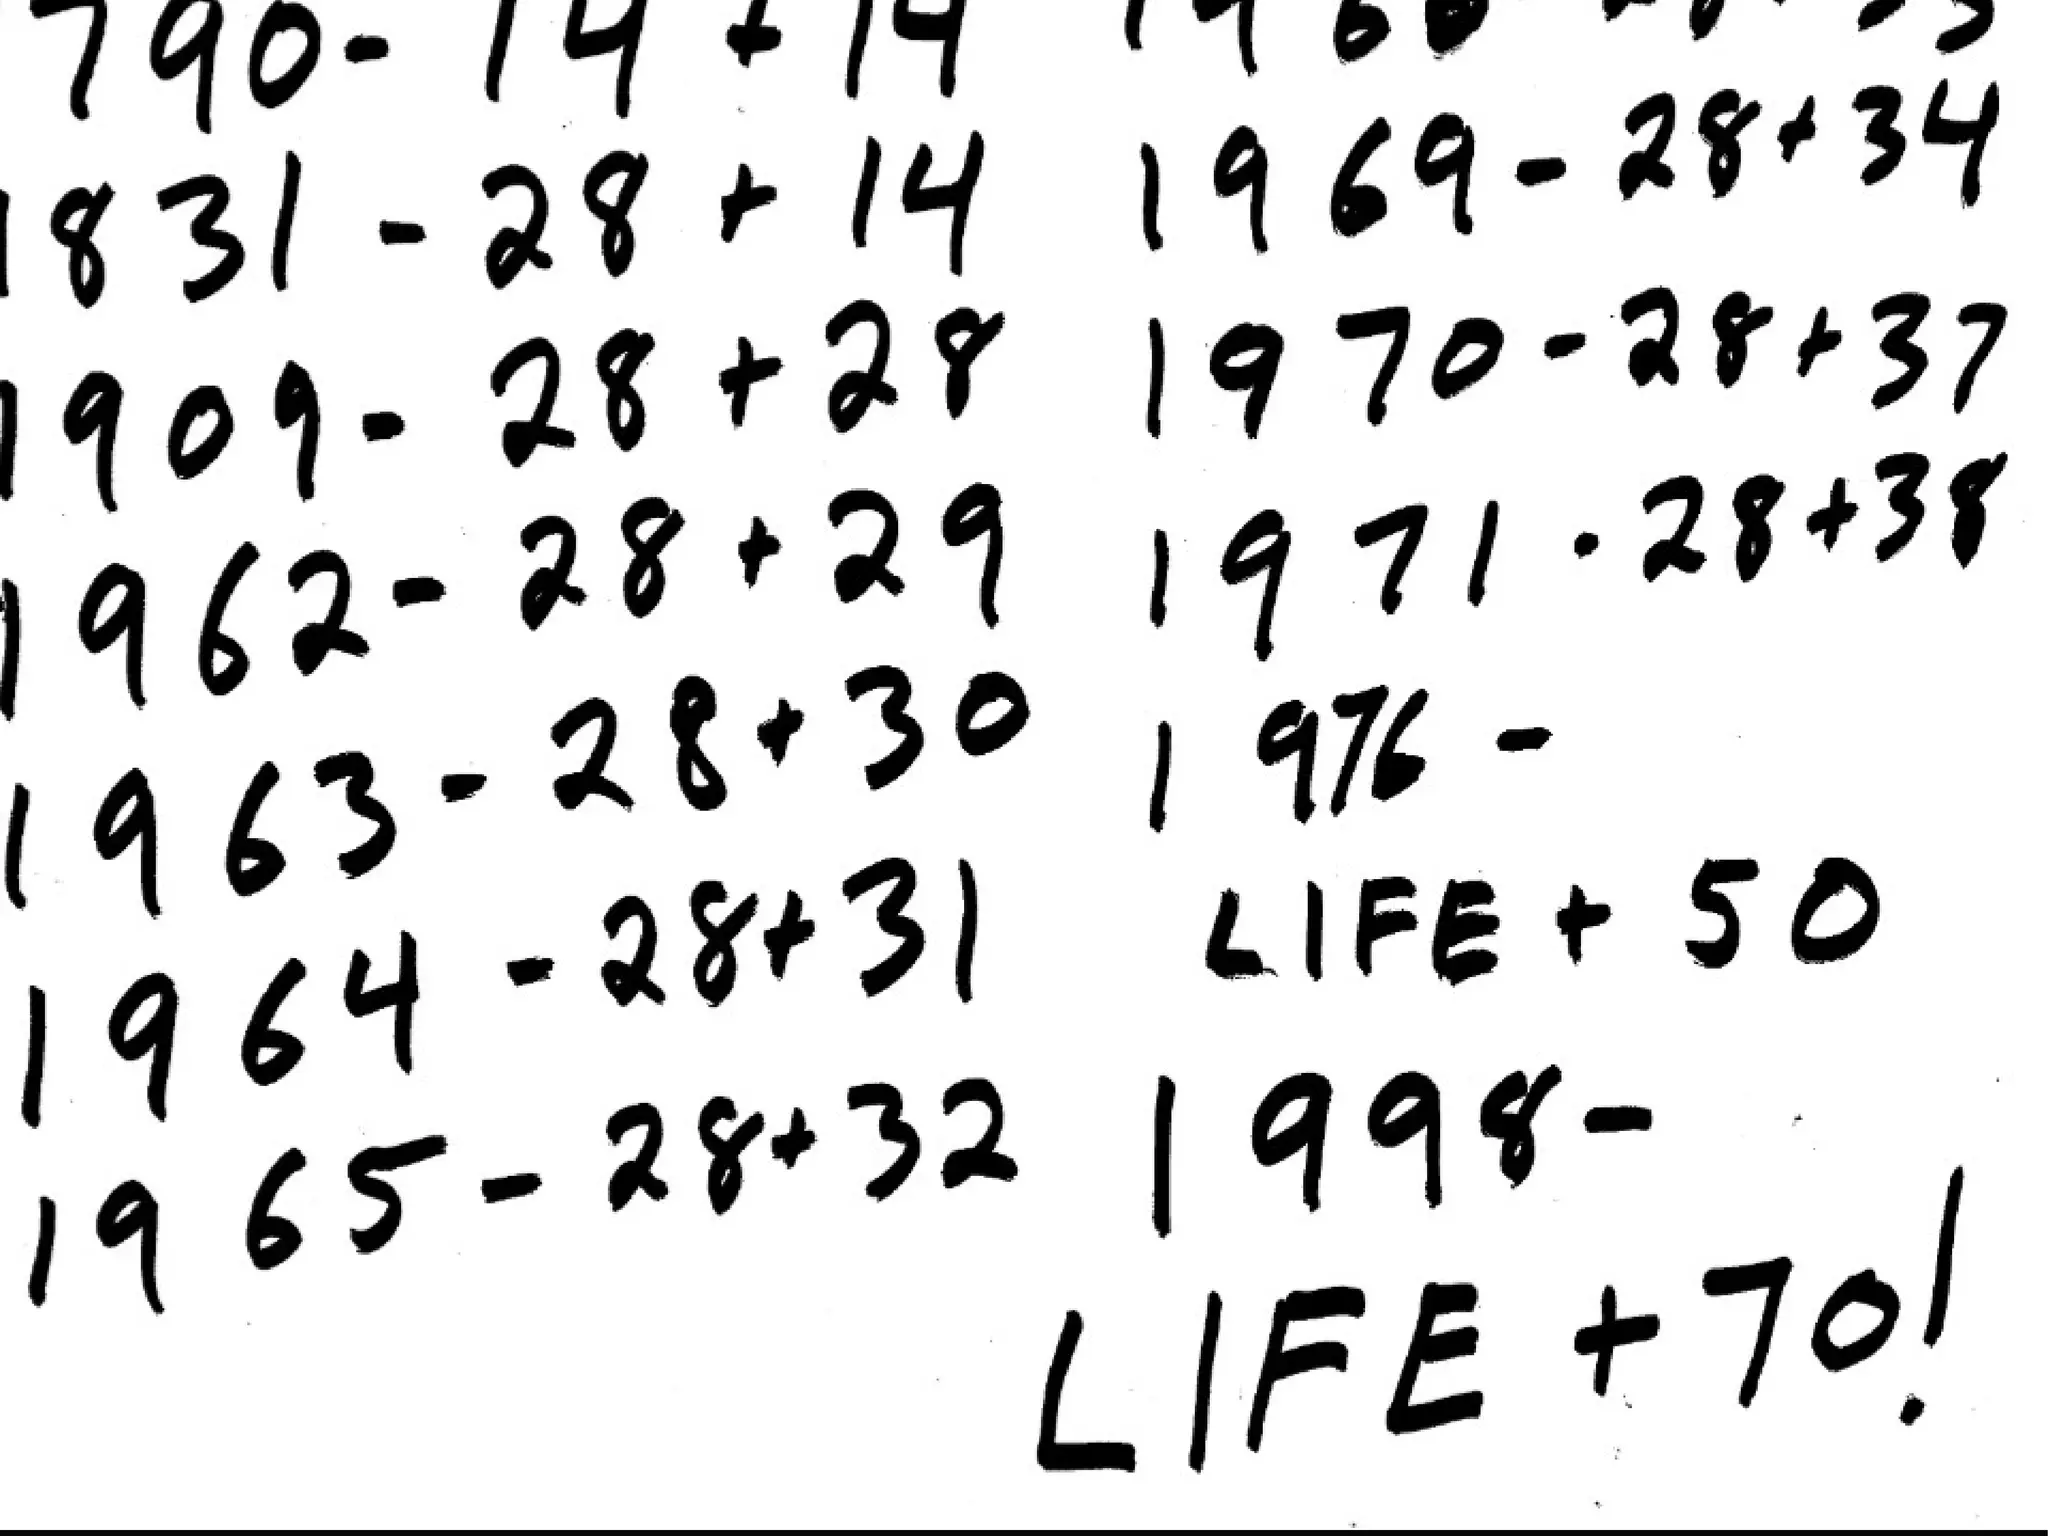 790- 14 + 14
1831 - 28 + 14
1909 - 28 + 28
1962 - 28 + 29
1963 - 28 + 30
1964 - 28 + 31
1965 - 28 + 32
1969 - 28 + 34
1970 - 28 + 37
1971 - 28 + 38
1976 -
LIFE + 50
1998 -
LIFE + 70!